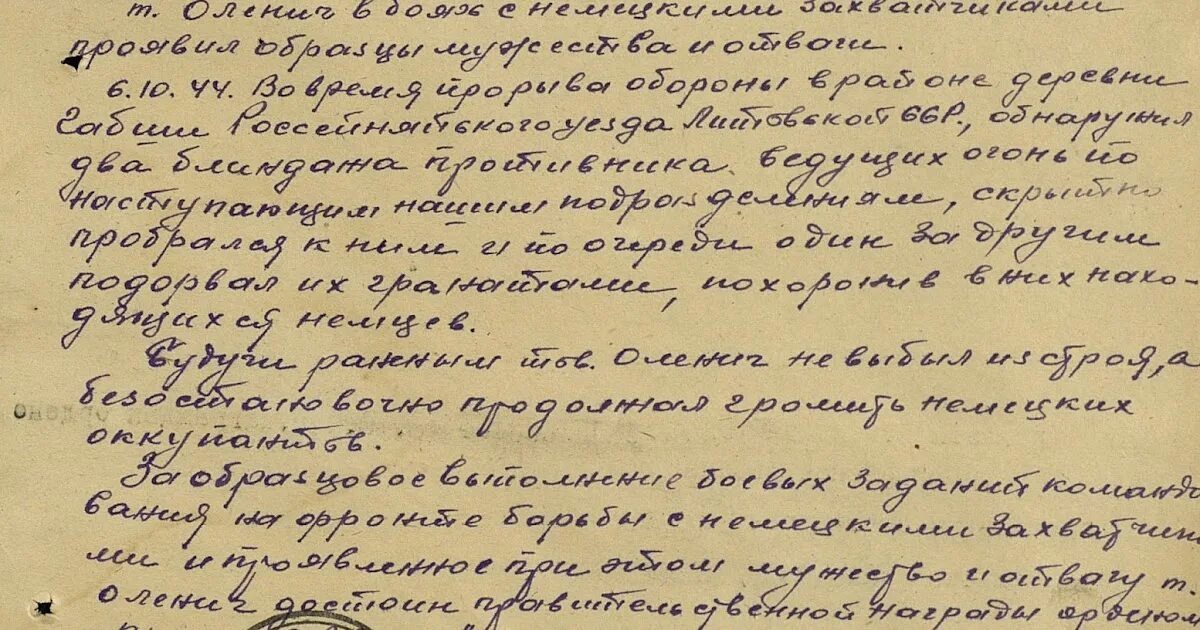 т. Оленич в боях с немецкими захватчиками
проявил образцы мужества и отваги.
6.10.44. Во время прорыва обороны в районе деревни
Габши Россейняйского уезда Литовской ССР, обнаружил
два блиндажа противника ведущих огонь по
наступающим нашим подразделениям, скрытно
пробрался к ним и по очереди один за другим
подорвал их гранатами, похоронив в них нахо-
дящихся немцев.
Будучи раненым тов. Оленич не выбыл из строя, а
безостановочно продолжал громить немецких
оккупантов.
За образцовое выполнение боевых заданий командо
вания на фронте борьбы с немецкими захватчика
ми и проявленное при этом мужество и отвагу т.
Оленич достоин правительственной награды орденом